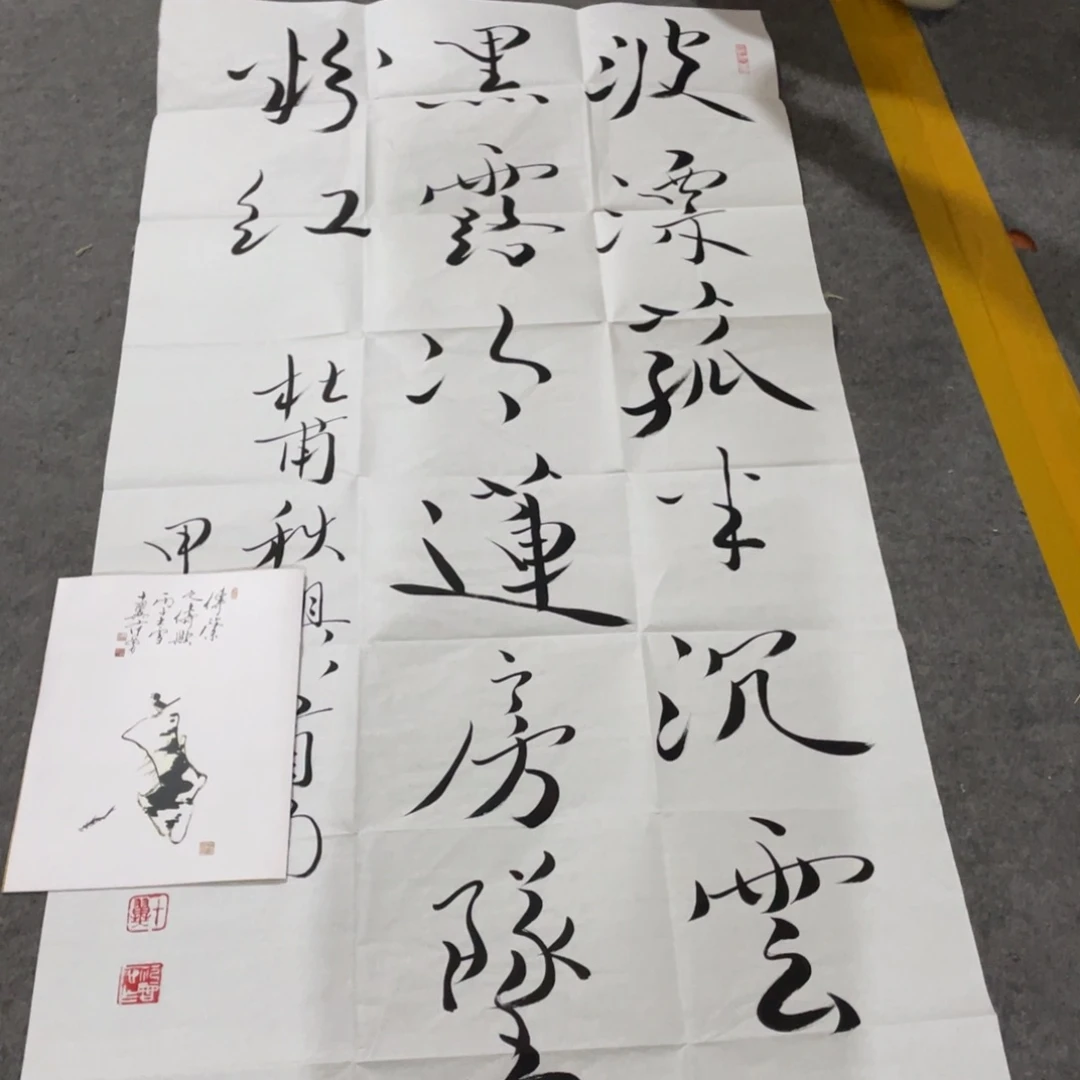 波漂菰米沉雲
黑露冷蓮房墜
粉红
杜甫秋興八首句
甲
十翼